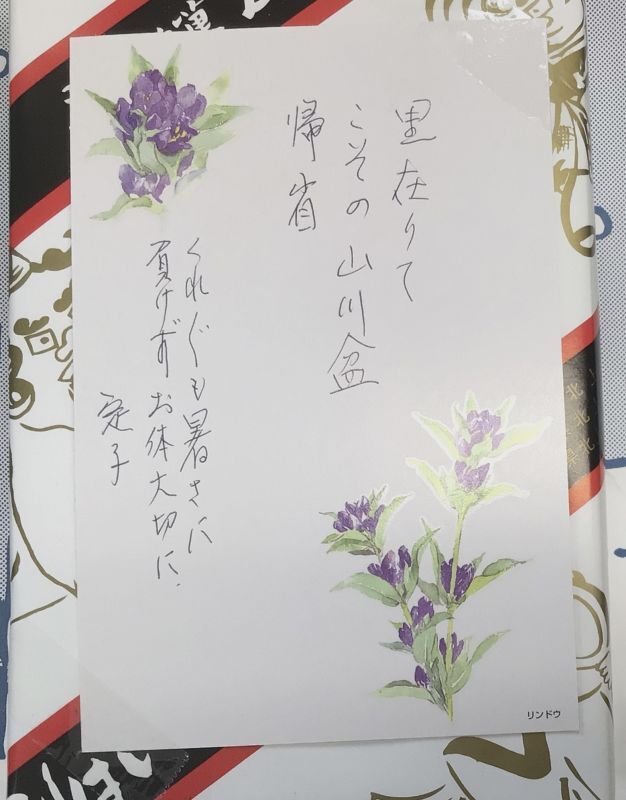 里在りて
こその山川盆
帰省
くれぐも暑さに
負けずお体大切に.
定子
リンドウ
北
北
北